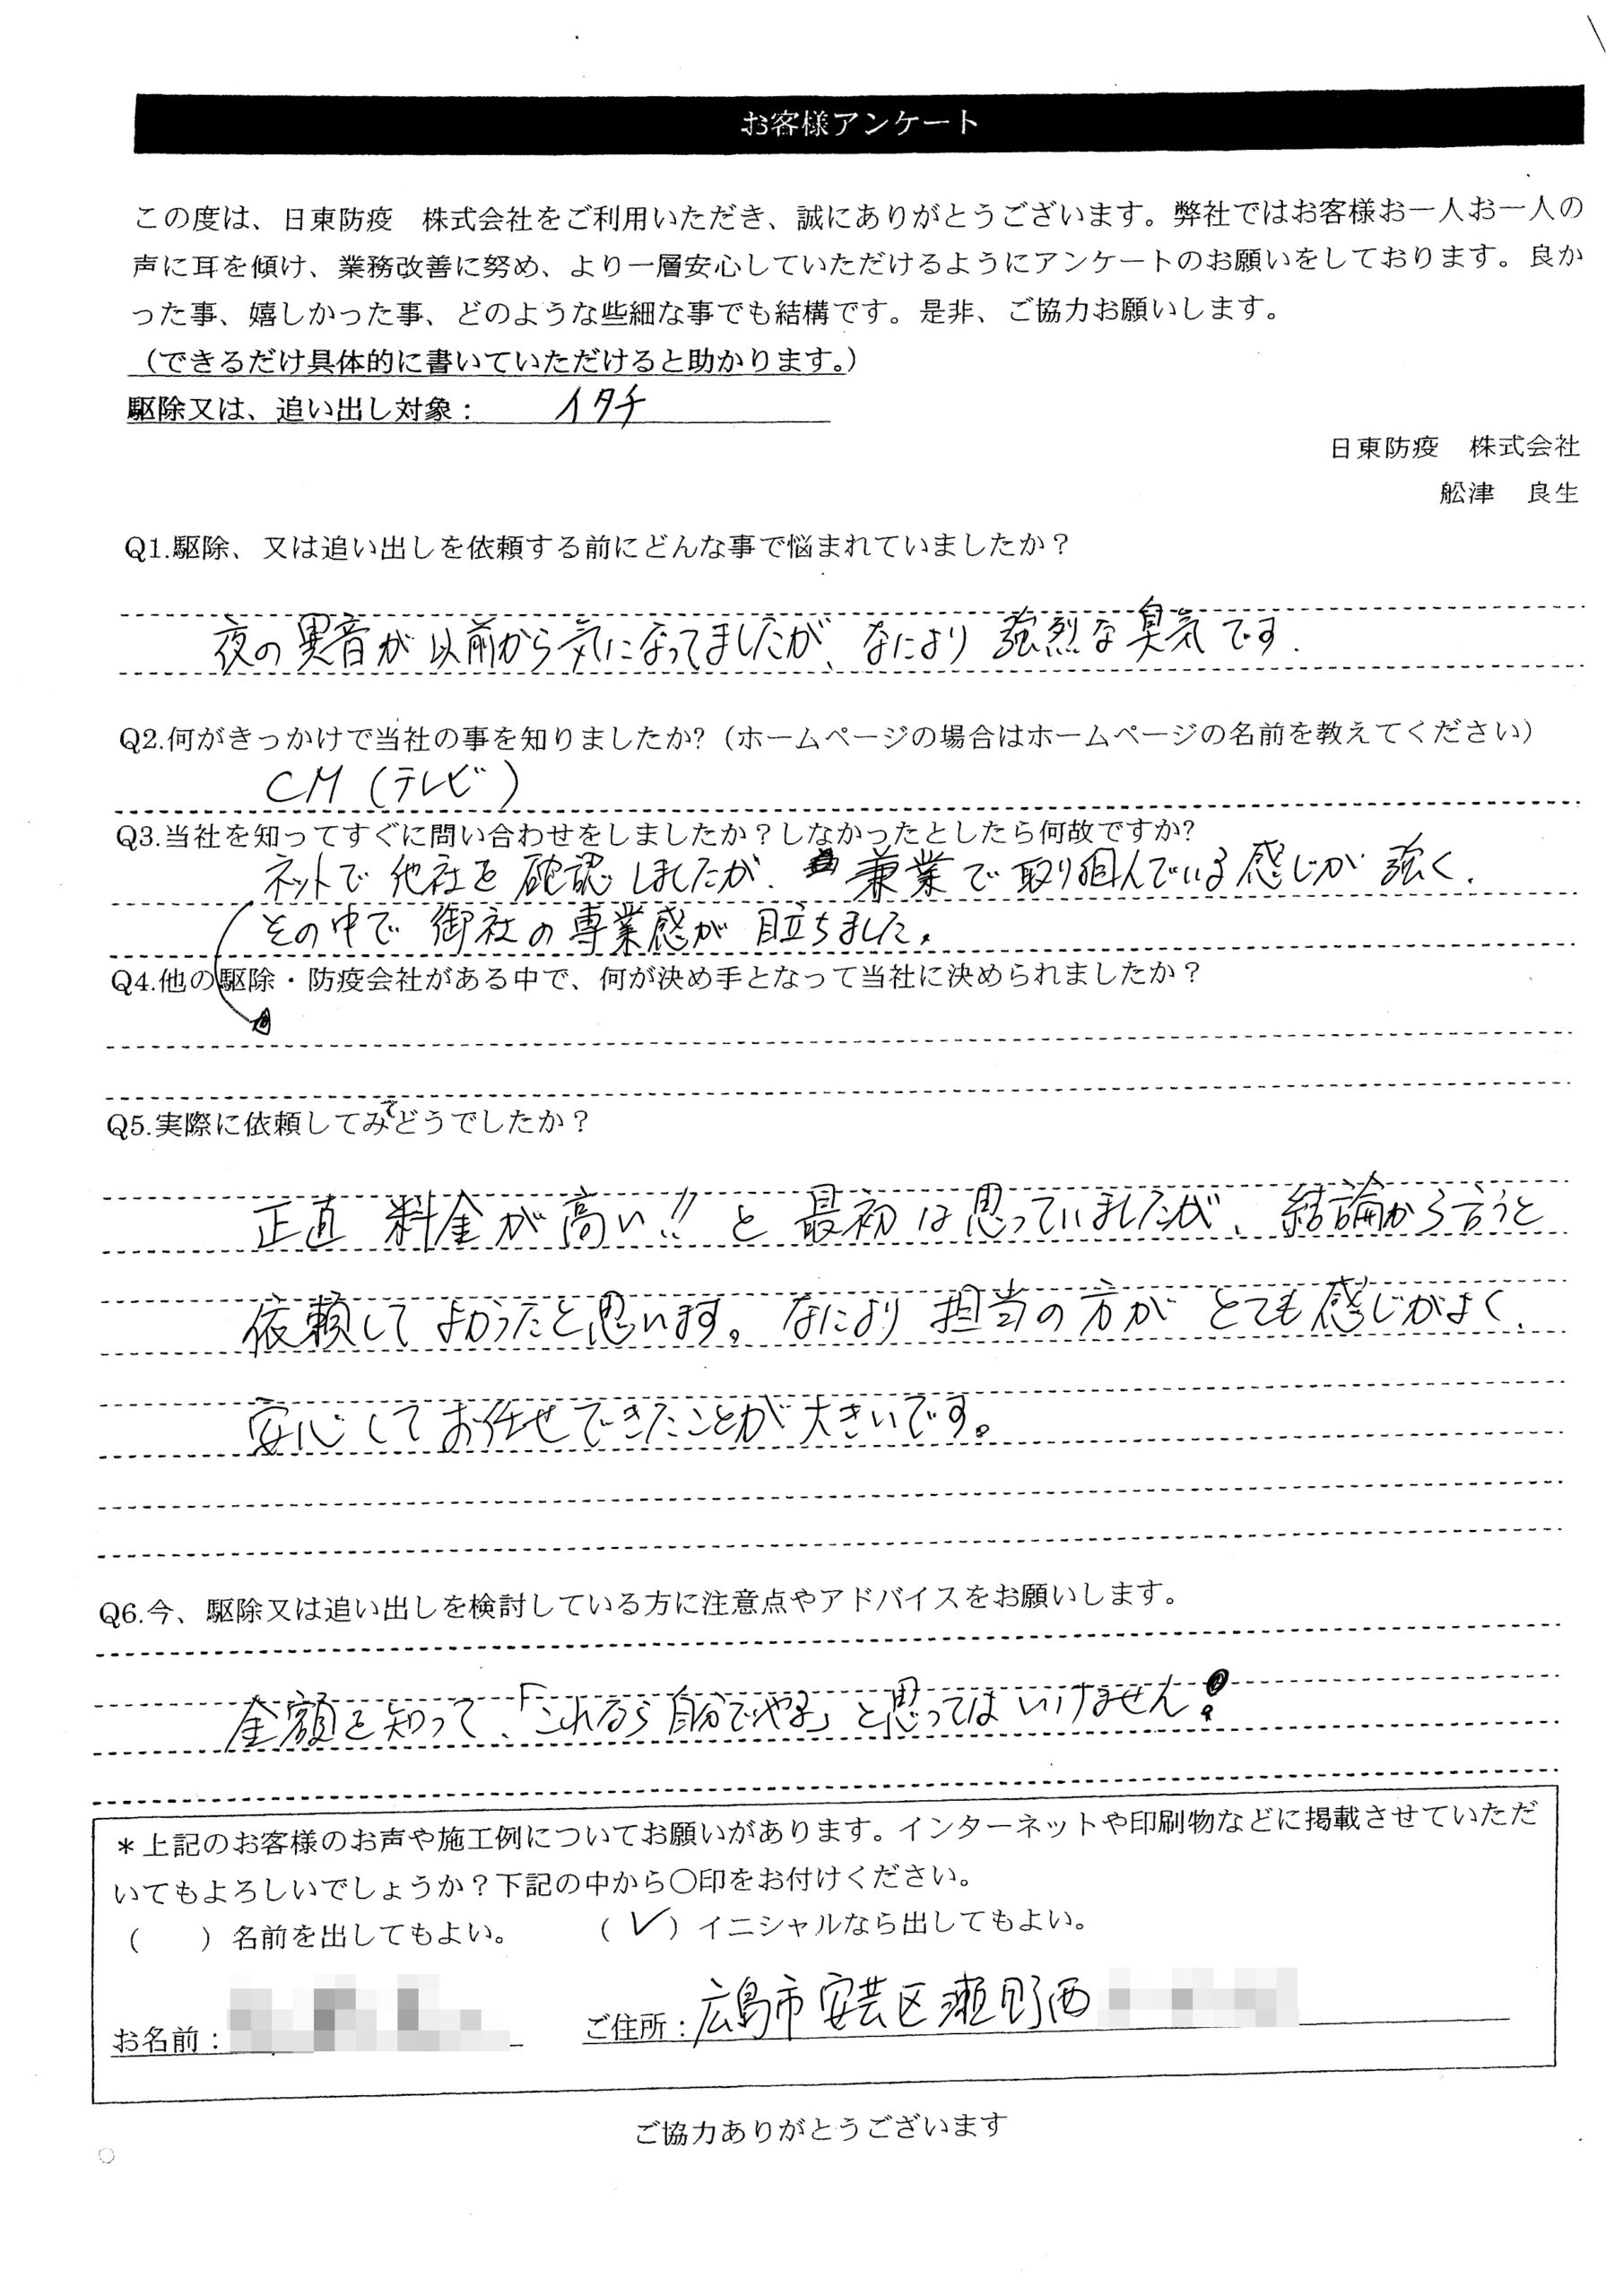 お客様アンケート
この度は、日東防疫　株式会社をご利用いただき、誠にありがとうございます。弊社ではお客様お一人お一人の
声に耳を傾け、業務改善に努め、より一層安心していただけるようにアンケートのお願いをしております。良か
った事、嬉しかった事、どのような些細な事でも結構です。是非、ご協力お願いします。
（できるだけ具体的に書いていただけると助かります。）
駆除又は、追い出し対象：　イタチ
日東防疫　株式会社
舩津　良生
Q1.駆除、又は追い出しを依頼する前にどんな事で悩まれていましたか？
夜の異音が以前から気になってましたが、なにより強烈な臭気です.
Q2.何がきっかけで当社の事を知りましたか?（ホームページの場合はホームページの名前を教えてください）
CM（テレビ）
Q3.当社を知ってすぐに問い合わせをしましたか？しなかったとしたら何故ですか?
ネットで他社を確認しましたが、兼業で取り組んでいる感じが強く、
その中で御社の専業感が目立ちました。
Q4.他の駆除・防疫会社がある中で、何が決め手となって当社に決められましたか？
Q5.実際に依頼してみてどうでしたか？
正直料金が高い!!と最初は思っていましたが、結論から言うと
依頼してよかったと思います。なにより担当の方がとても感じがよく、
安心してお任せできたことが大きいです。
Q6.今、駆除又は追い出しを検討している方に注意点やアドバイスをお願いします。
金額を知って、「これなら自分でやる」と思ってはいけません!
＊上記のお客様のお声や施工例についてお願いがあります。インターネットや印刷物などに掲載させていただ
いてもよろしいでしょうか？下記の中から〇印をお付けください。
（　　）名前を出してもよい。　　（✓）イニシャルなら出してもよい。
お名前：　　ご住所：広島市安芸区瀬野西
ご協力ありがとうございます